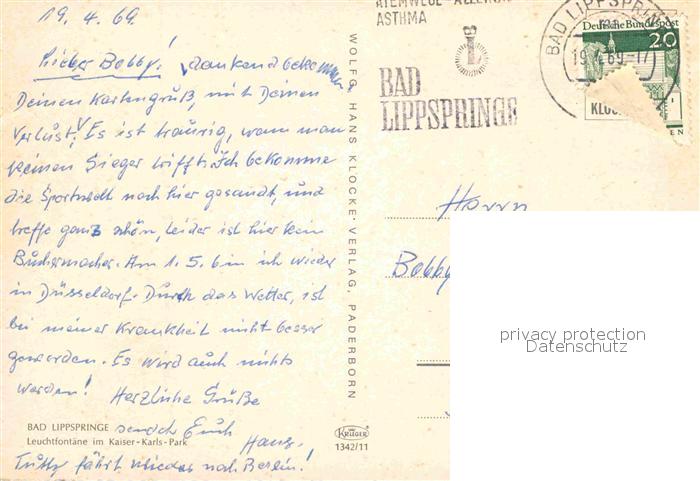 19. 4. 69.
Lieber Bobby! dankend bekommen
Deinen Kartengruß, mit Deinen
Verlust, Es ist traurig, wann man
keinen Sieger trifft. Ich bekomme
die Sportwelt nach hier gesandt, und
treffe ganz schön, leider ist hier kein
Buchermacher. Am 1. 5. bin ich wieder
in Düsseldorf. Durch das Wetter, ist
bei meiner Krankheit nicht besser
geworden. Es wird auch nichts
werden! Herzliche Grüße
sendet Euch
Hans.
BAD LIPPSPRINGE
Leuchtfontäne im Kaiser-Karls-Park
fährt wieder nach Berlin!
WOLFG. HANS KLOCKE-VERLAG, PADERBORN
KRÜGER
1342/11
ATEMWEGE-ALLERGIE
ASTHMA
BAD
LIPPSPRINGE
BAD LIPPSPRINGE
19.4.69-17
Deutsche Bundespost
20
Herrn
Bobby
privacy protection
Datenschutz